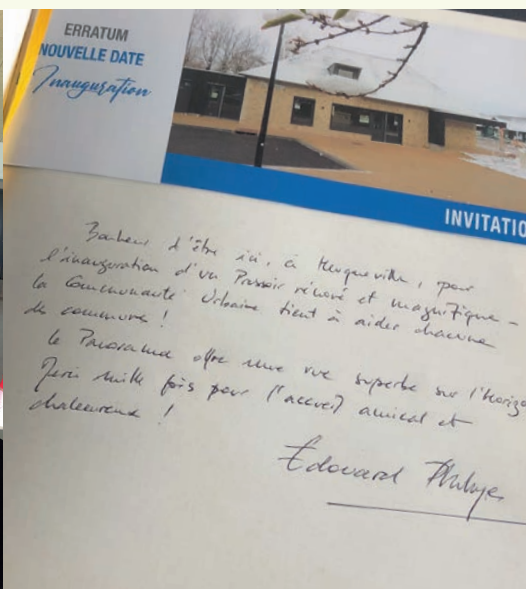 ERRATUM
NOUVELLE DATE
Inauguration
INVITATIO
Bonheur d'être ici, à Heuqueville, pour
l'inauguration d'un Pressoir rénové et magnifique -
la Communauté Urbaine tient à aider chacune
des communes !
le Panorama offre une vue superbe sur l'horizo
Merci mille fois pour l'accueil amical et
chaleureux !
Edouard Philippe